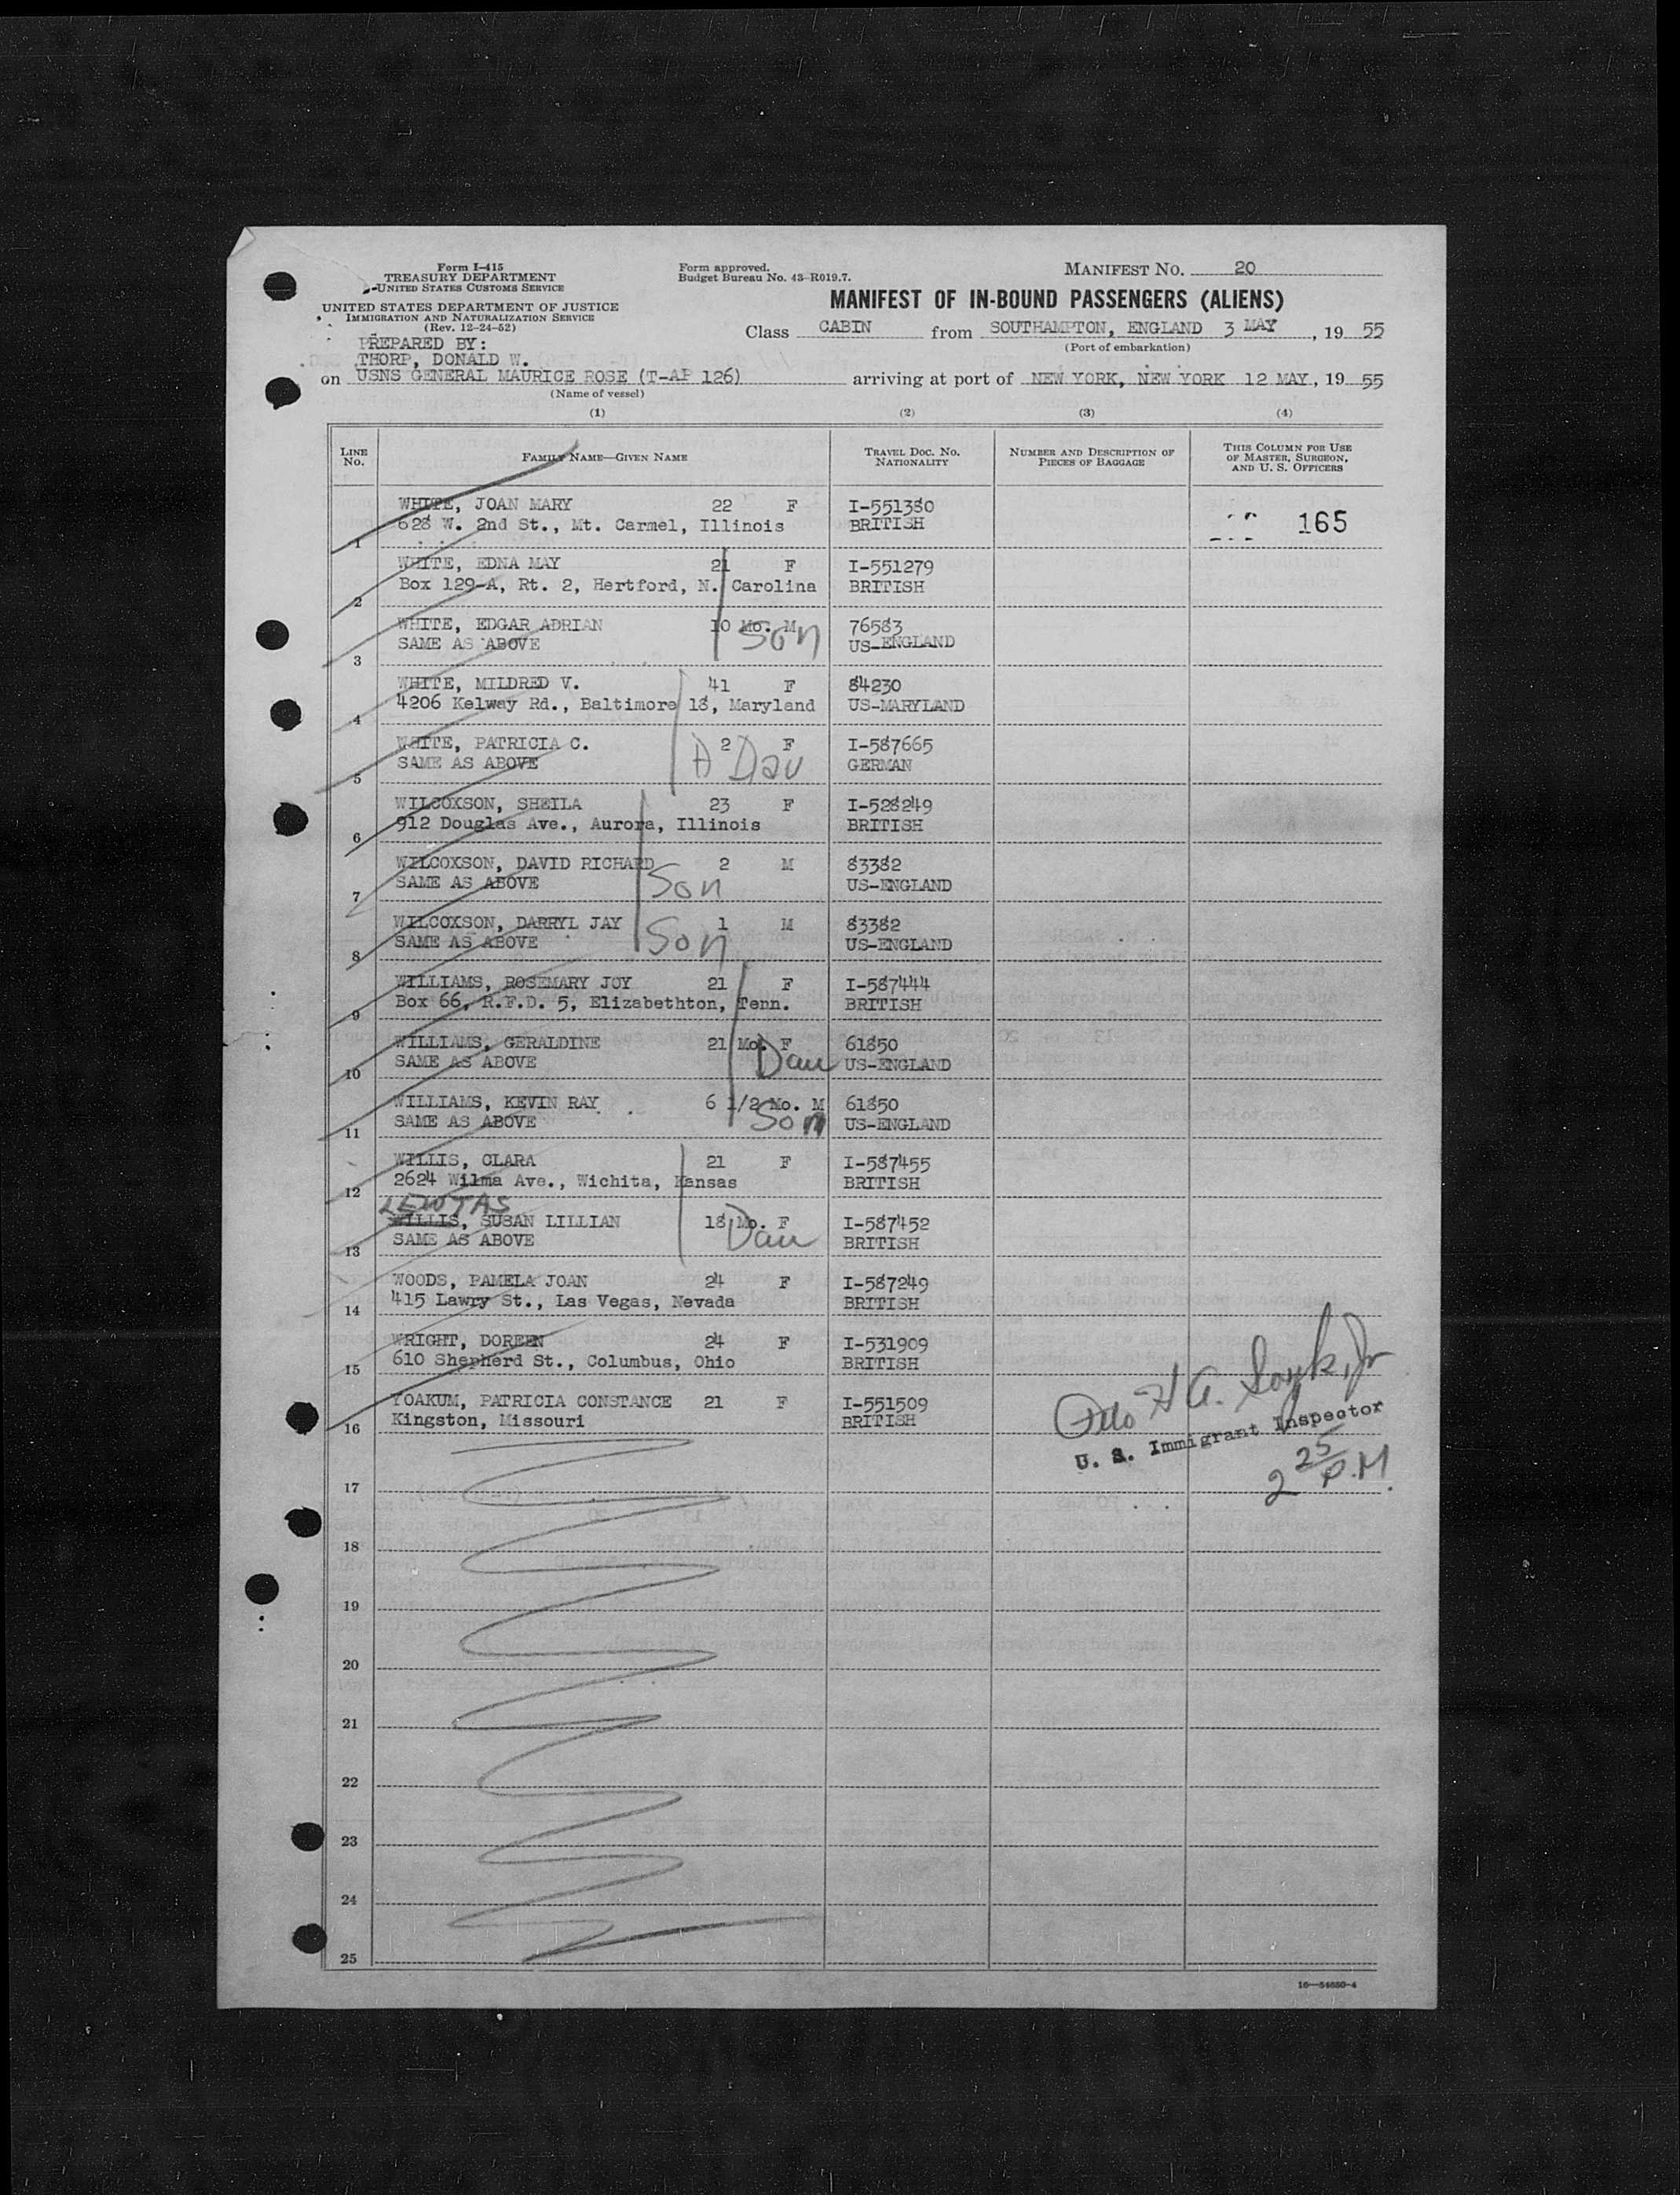 Form I-415
TREASURY DEPARTMENT
UNITED STATES CUSTOMS SERVICE
UNITED STATES DEPARTMENT OF JUSTICE
IMMIGRATION AND NATURALIZATION SERVICE
(Rev. 12-24-52)
Form approved.
Budget Bureau No. 43-R019.7.
MANIFEST NO. 20
MANIFEST OF IN-BOUND PASSENGERS (ALIENS)
Class CABIN from SOUTHAMPTON, ENGLAND 3 MAY, 19 55
(Port of embarkation)
PREPARED BY:
THORP, DONALD W.
on USNS GENERAL MAURICE ROSE (T-AP 126) arriving at port of NEW YORK, NEW YORK 12 MAY, 19 55
(Name of vessel)
(1) (2) (3) (4)
LINE NO. FAMILY NAME—GIVEN NAME TRAVEL DOC. NO. NATIONALITY NUMBER AND DESCRIPTION OF PIECES OF BAGGAGE THIS COLUMN FOR USE OF MASTER, SURGEON, AND U. S. OFFICERS
WHITE, JOAN MARY 22 F I-551380
1 628 W. 2nd St., Mt. Carmel, Illinois BRITISH 165
WHITE, EDNA MAY 21 F I-551279
2 Box 129-A, Rt. 2, Hertford, N. Carolina BRITISH
WHITE, EDGAR ADRIAN 10 Mo. M 76583
3 SAME AS ABOVE Son US-ENGLAND
WHITE, MILDRED V. 41 F 84230
4 4206 Kelway Rd., Baltimore 18, Maryland US-MARYLAND
WHITE, PATRICIA C. 2 F I-587665
5 SAME AS ABOVE A Dau GERMAN
WILCOXSON, SHEILA 23 F I-528249
6 912 Douglas Ave., Aurora, Illinois BRITISH
WILCOXSON, DAVID RICHARD 2 M 83382
7 SAME AS ABOVE Son US-ENGLAND
WILCOXSON, DARRYL JAY 1 M 83382
8 SAME AS ABOVE Son US-ENGLAND
WILLIAMS, ROSEMARY JOY 21 F I-587444
9 Box 66, R.F.D. 5, Elizabethton, Tenn. BRITISH
WILLIAMS, GERALDINE 21 Mo. F 61850
10 SAME AS ABOVE Dau US-ENGLAND
WILLIAMS, KEVIN RAY 6 1/2 Mo. M 61850
11 SAME AS ABOVE Son US-ENGLAND
WILLIS, CLARA 21 F I-587455
12 2624 Wilma Ave., Wichita, Kansas BRITISH
LEWTAS
WILLIS, SUSAN LILLIAN 18 Mo. F I-587452
13 SAME AS ABOVE Dau BRITISH
WOODS, PAMELA JOAN 24 F I-587249
14 415 Lawry St., Las Vegas, Nevada BRITISH
WRIGHT, DOREEN 24 F I-531909
15 610 Shepherd St., Columbus, Ohio BRITISH
YOAKUM, PATRICIA CONSTANCE 21 F I-551509
16 Kingston, Missouri BRITISH
U. S. Immigrant Inspector
2 25 P.M.
17
18
19
20
21
22
23
24
25